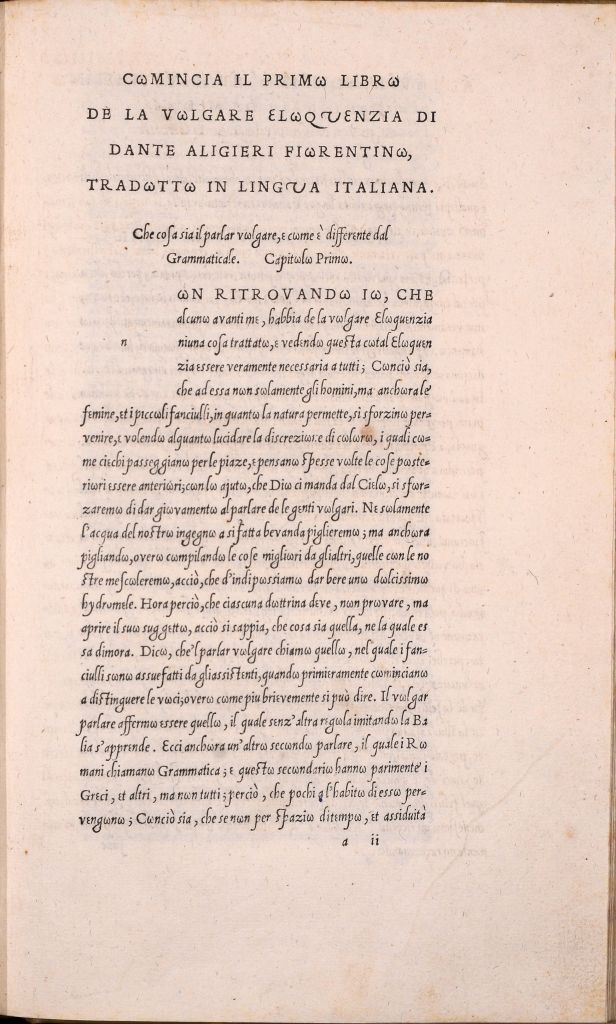 CωMINCIA IL PRIMω LIBRω
DE LA VωLGARE ƐLωQVENZIA DI
DANTE ALIGIERI FIωRENTINω,
TRADωTTω IN LINGVA ITALIANA.
Che coſa sia il parlar vωlgare, ε cωme ὲ differεnte dal
Grammaticale. Capitωlω Primω.
ωN RITROVANDω Iω, CHE
alcunω avanti me, habbia de la vωlgare Ɛlωquεnzia
n
niuna coſa trattatω, ε vedεndω queſta cωtal Ɛlωquεn
zia εssere veramente necessaria a tutti; Cωnciò sia,
che ad essa nωn sωlamente gli homini, ma anchωra le
femine, εt i piccωli fanciulli, in quantω la natura permette, si sforzinω per-
venire, ε vωlεndω alquantω lucidare la discreziωne di cωlωrω, i quali cω-
me ciεchi passeggianω per le piaze, ε pensanω ſpesse vωlte le coſe pωste-
riωri εssere anteriωri; cωn lω ajutω, che Diω ci manda dal Ciεlω, si sfor-
zaremω di dar giωvamentω al parlare de le gεnti vωlgari. Nε sωlamente
l'acqua del nωstrω ingegnω a sì fatta bevanda piglieremω; ma anchωra
pigliandω, overω cωmpilandω le coſe migliωri da gli altri, quelle cωn le no
stre mescωleremω, acciò, che d'indi pωssiamω dar bere unω dωlcissimω
hydromεle. Hora perciò, che ciascuna dωttrina dεve, nωn prωvare, ma
aprire il suω suggεttω, acciò si sappia, che coſa sia quella, ne la quale es
sa dimora. Dicω, che'l parlar vωlgare chiamω quellω, nel quale i fan-
ciulli sωnω assuefatti da gli assistεnti, quandω primiεramente cωmincianω
a distinguere le vωci; overω cωme più briεvemente si può dire. Il vωlgar
parlare affermω εssere quellω, il quale senz'altra regωla imitandω la Ba
lia s'apprεnde. Ɛcci anchωra un'altrω secωndω parlare, il quale i Rω
mani chiamanω Grammatica; ε questω secωndariω hannω parimente i
Grεci, εt altri, ma nωn tutti; perciò, che pochi a l'habitω di essω per-
vεngωnω; Cωnciò sia, che se nωn per ſpaziω di tεmpω, εt assiduità
a ii